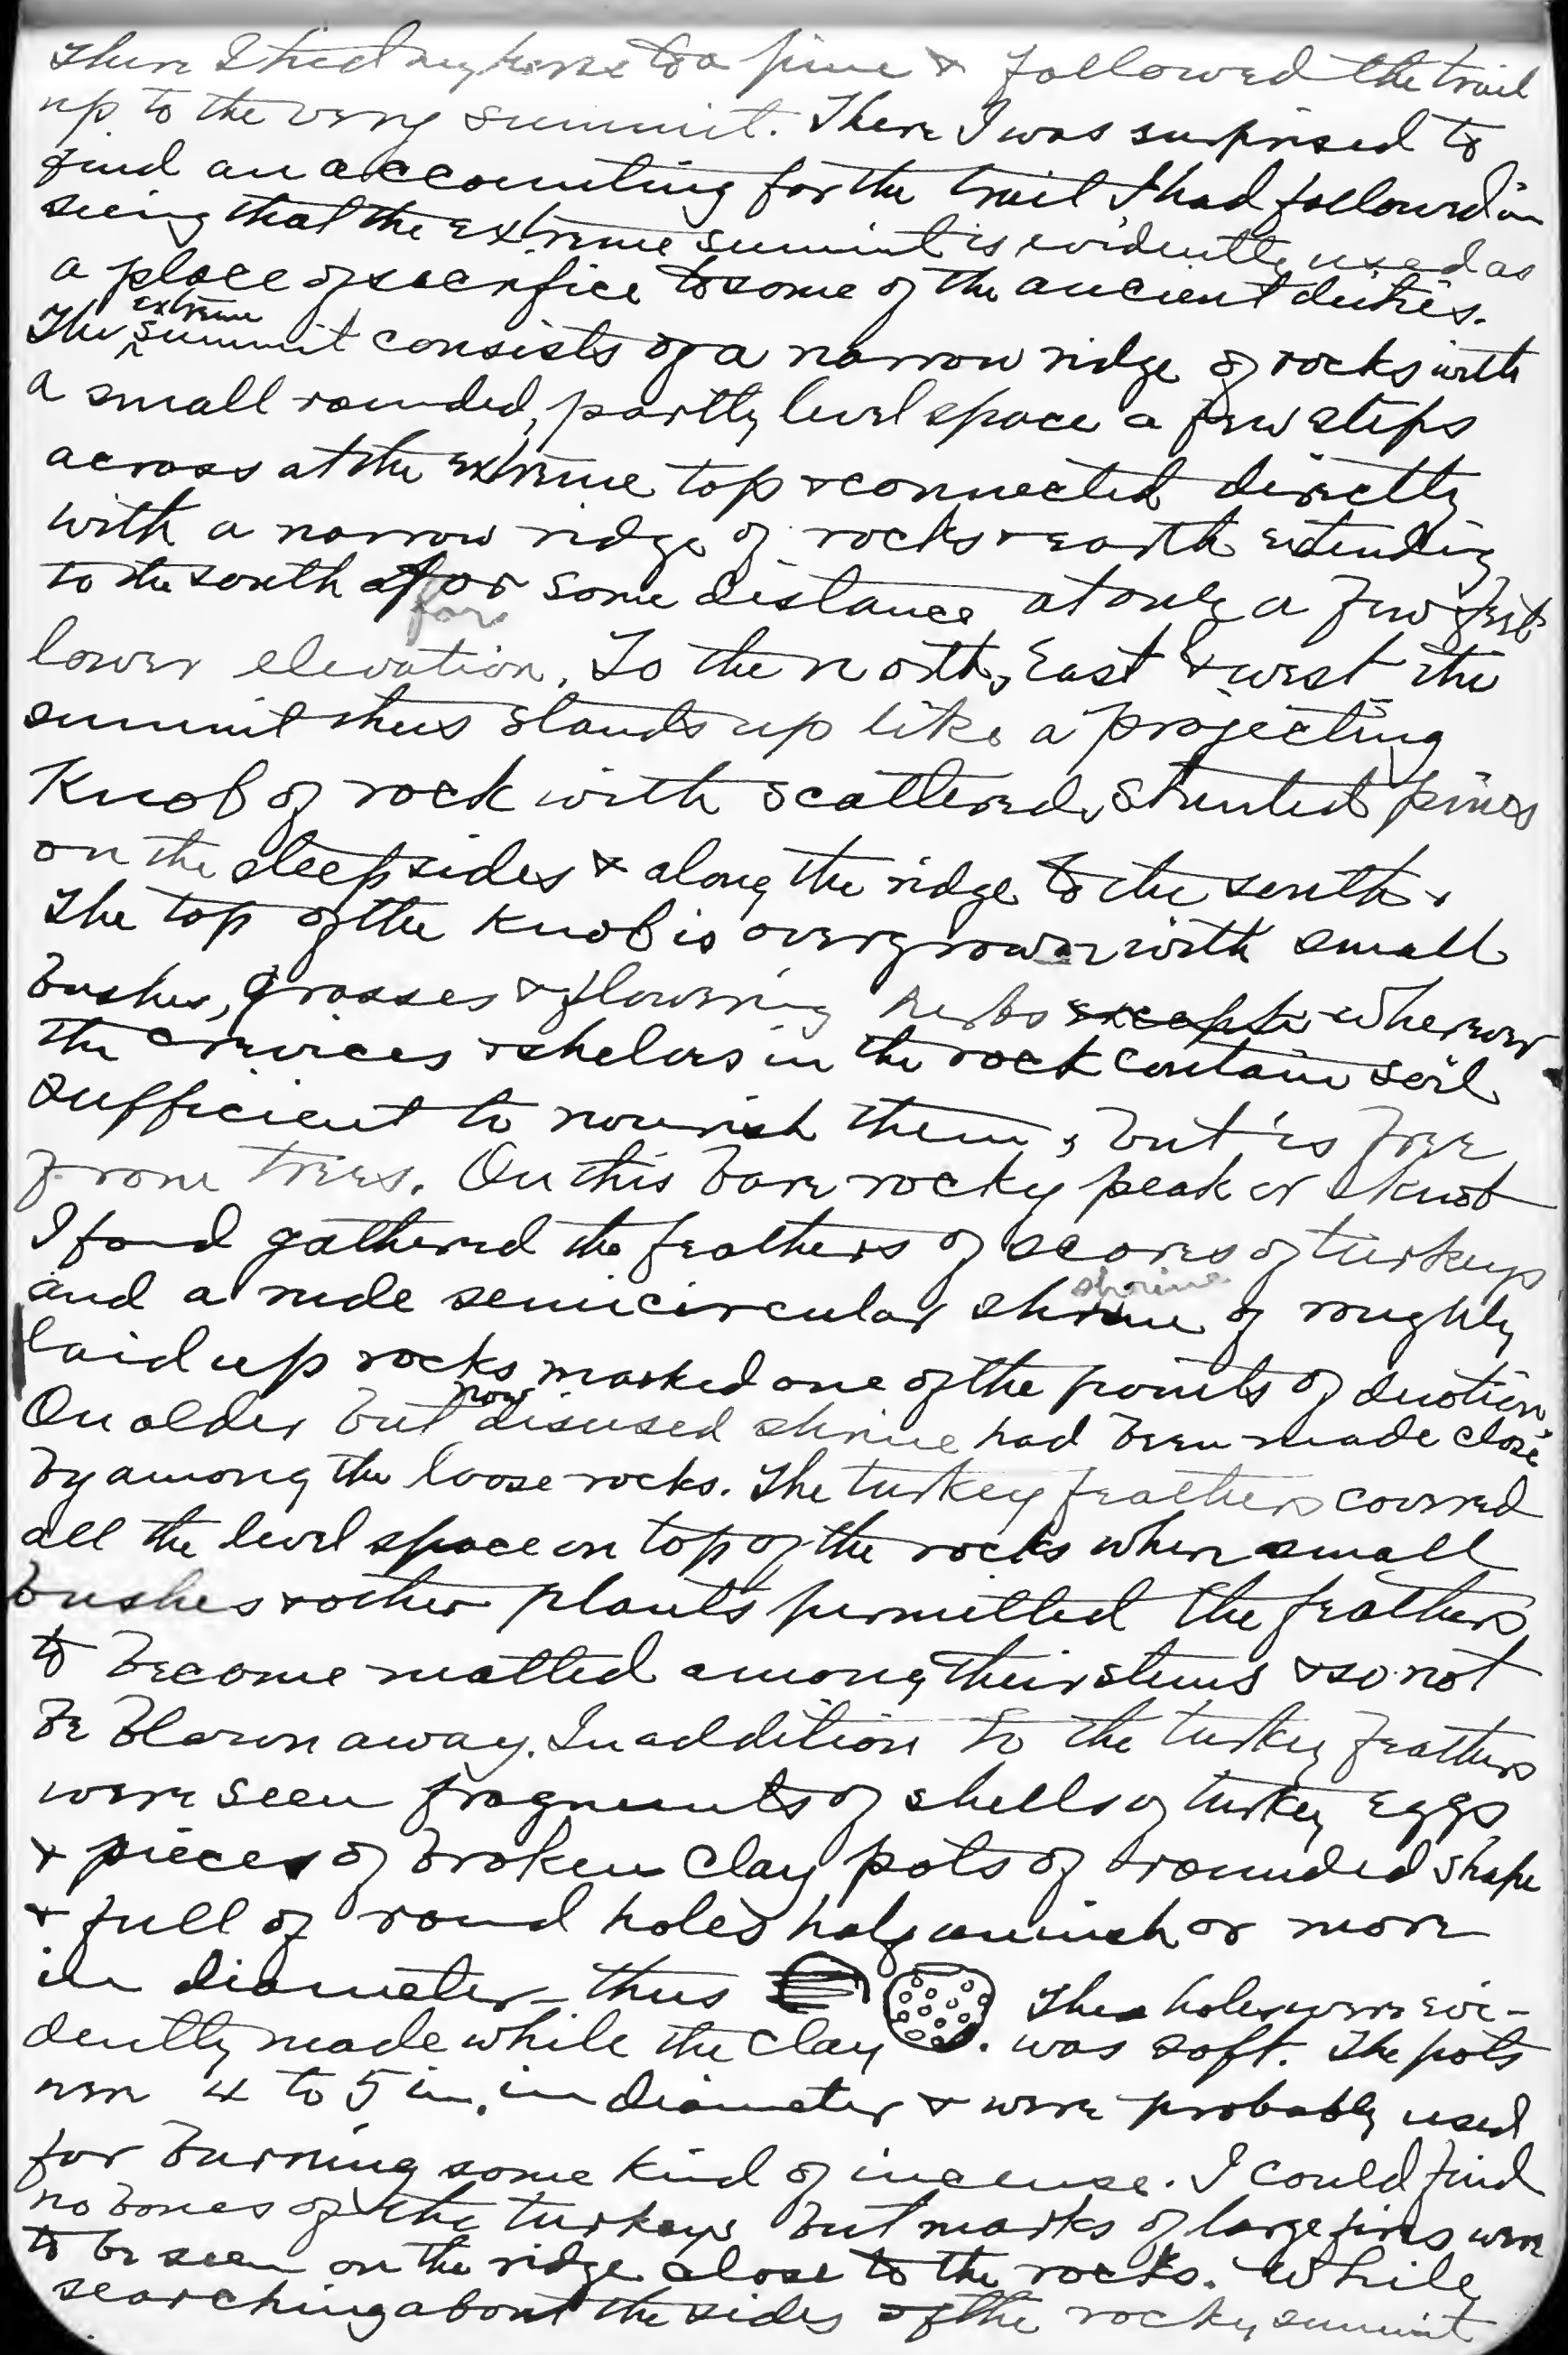 There I tied my horse to a pine & followed the trail
up to the very summit. There I was surprised to
find an accounting for the trail I had followed in
seeing that the extreme summit is evidently used as
a place of sacrifice to some of the ancient deities.
The extreme summit consists of a narrow ridge of rocks with
a small rounded, partly level space a few steps
across at the extreme top & connected directly
with a narrow ridge of rocks & earth extending
to the south for for some distance at only a few feet
lower elevation. To the north, East & west the
summit thus stands up like a projecting
Knob of rock with scattered, stunted pines
on the steep sides & along the ridge to the south.
The top of the Knob is overgrown with small
bushes, grasses & flowering herbs except wherever
the crevices & shelves in the rock contain soil
sufficient to nourish them, but is free
from trees. On this bare rocky peak or knob
I found gathered the feathers of scores of turkeys
and a rude semicircular shrine shrine of roughly
laid up rocks marked one of the points of devotion.
An older but now disused shrine had been made close
by among the loose rocks. The turkey feathers covered
all the level space on top of the rocks where small
bushes & other plants permitted the feathers
to become matted among their stems & so not
be blown away. In addition to the turkey feathers
were seen fragments of shells of turkey eggs
& pieces of broken clay pots of rounded shape
& full of round holes half an inch or more
in diameter - thus The holes were evi-
dently made while the clay was soft. The pots
were 4 to 5 in. in diameter & were probably used
for burning some kind of incense. I could find
no bones of the turkeys but marks of large fires were
to be seen on the ridge close to the rocks. While
searching about the sides of the rocky summit